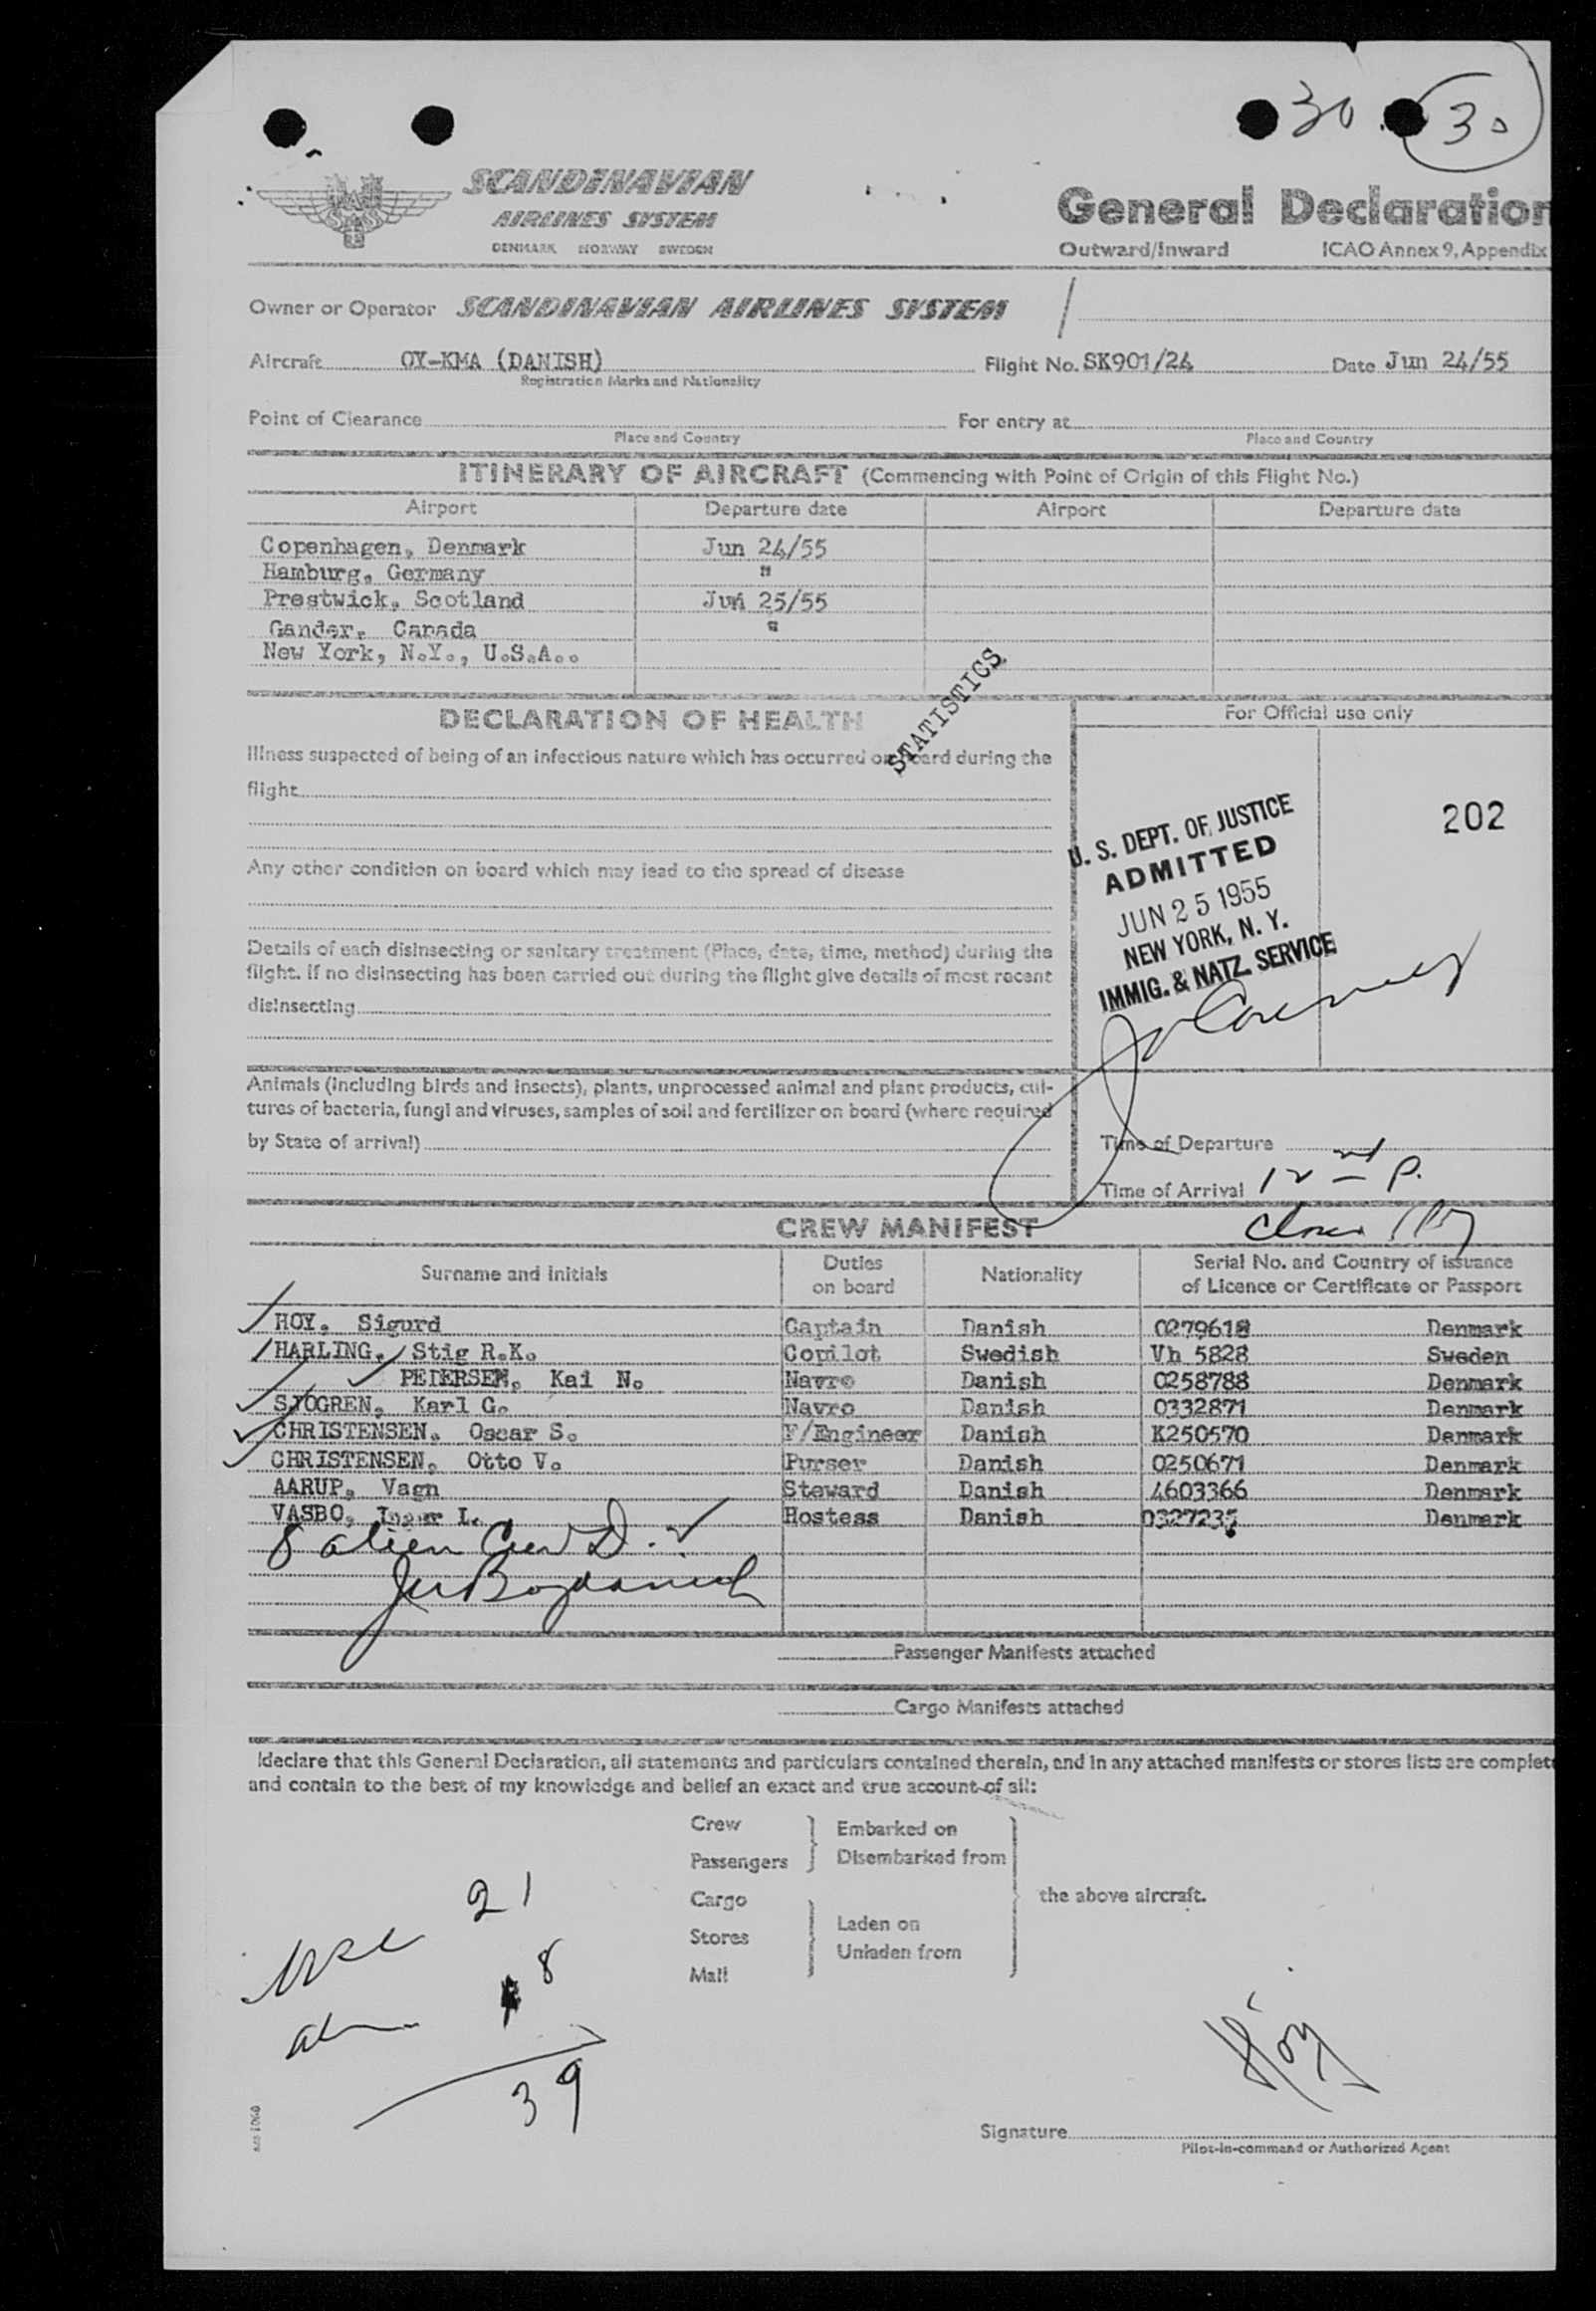 30 30
SCANDINAVIAN
AIRLINES SYSTEM
DENMARK NORWAY SWEDEN
General Declaration
Outward/Inward ICAO Annex 9, Appendix
Owner or Operator SCANDINAVIAN AIRLINES SYSTEM
Aircraft OY-KMA (DANISH) Flight No. SK901/24 Date Jun 24/55
Registration Marks and Nationality
Point of Clearance For entry at
Place and Country Place and Country
ITINERARY OF AIRCRAFT (Commencing with Point of Origin of this Flight No.)
Airport Departure date Airport Departure date
Copenhagen, Denmark Jun 24/55
Hamburg, Germany "
Prestwick, Scotland Jun 25/55
Gander, Canada "
New York, N.Y., U.S.A..
STATISTICS
DECLARATION OF HEALTH
Illness suspected of being of an infectious nature which has occurred on board during the
flight
Any other condition on board which may lead to the spread of disease
Details of each disinsecting or sanitary treatment (Place, date, time, method) during the
flight. If no disinsecting has been carried out during the flight give details of most recent
disinsecting
Animals (including birds and insects), plants, unprocessed animal and plant products, cul-
tures of bacteria, fungi and viruses, samples of soil and fertilizer on board (where required
by State of arrival)
For Official use only
202
U. S. DEPT. OF JUSTICE
ADMITTED
JUN 25 1955
NEW YORK, N. Y.
IMMIG. & NATZ. SERVICE
Time of Departure
Time of Arrival 12 P.
CREW MANIFEST
Surname and initials Duties on board Nationality Serial No. and Country of issuance of Licence or Certificate or Passport
HOY, Sigurd Captain Danish 0279618 Denmark
HARLING, Stig R.K. Copilot Swedish Vh 5828 Sweden
PEDERSEN, Kai N. Navro Danish 0258788 Denmark
SJOGREN, Karl G. Navro Danish 0332871 Denmark
CHRISTENSEN, Oscar S. F/Engineer Danish K250570 Denmark
CHRISTENSEN, Otto V. Purser Danish 0250671 Denmark
AARUP, Vagn Steward Danish 4603366 Denmark
VASBO, Inger L. Hostess Danish Denmark
8 alien Crew D.
Passenger Manifests attached
Cargo Manifests attached
I declare that this General Declaration, all statements and particulars contained therein, and in any attached manifests or stores lists are complete
and contain to the best of my knowledge and belief an exact and true account of all:
Crew Embarked on
Passengers Disembarked from
Cargo the above aircraft.
Stores Laden on
Mail Unladen from
21
8
39
Höy
Signature
Pilot-in-command or Authorized Agent